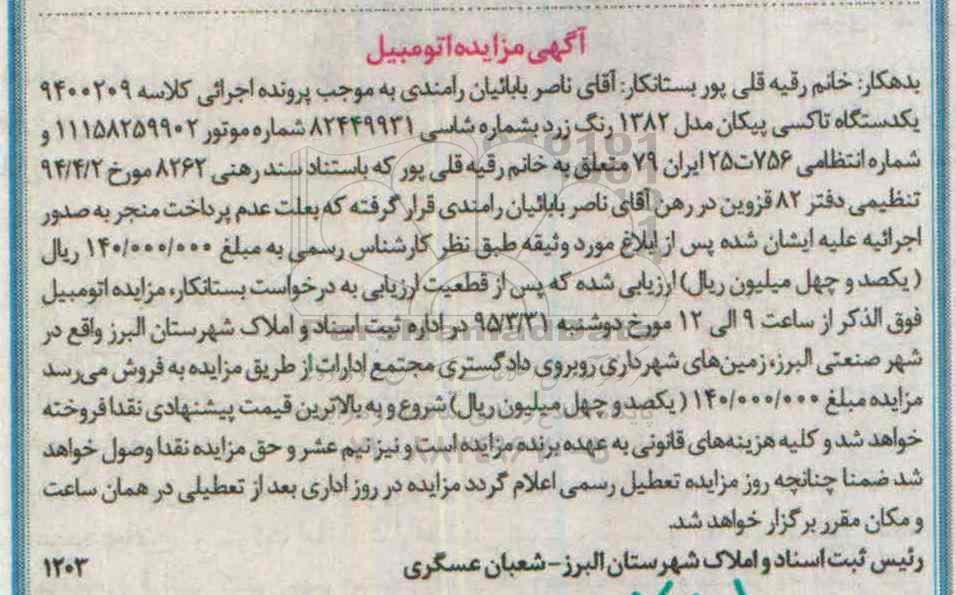 آگهی مزایده اتومبیل
بدهکار: خانم رقیه قلی پور بستانکار: آقای ناصر بابائیان رامندی به موجب پرونده اجرائی کلاسه ۹۴۰۰۲۰۹
یکدستگاه تاکسی پیکان مدل ۱۳۸۲ رنگ زرد بشماره شاسی ۸۲۴۴۹۹۳۱ شماره موتور ۱۱۱۵۸۲۵۹۹۰۲ و
شماره انتظامی ۷۵۶ت۲۵ ایران ۷۹ متعلق به خانم رقیه قلی پور که باستناد سند رهنی ۸۲۶۲ مورخ ۹۴/۴/۲
تنظیمی دفتر ۸۲ قزوین در رهن آقای ناصر بابائیان رامندی قرار گرفته که بعلت عدم پرداخت منجر به صدور
اجرائیه علیه ایشان شده پس از ابلاغ مورد وثیقه طبق نظر کارشناس رسمی به مبلغ ۱۴۰/۰۰۰/۰۰۰ ریال
(یکصد و چهل میلیون ریال) ارزیابی شده که پس از قطعیت ارزیابی به درخواست بستانکار، مزایده اتومبیل
فوق الذکر از ساعت ۹ الی ۱۲ مورخ دوشنبه ۹۵/۳/۳۱ در اداره ثبت اسناد و املاک شهرستان البرز واقع در
شهر صنعتی البرز، زمین‌های شهرداری روبروی دادگستری مجتمع ادارات از طریق مزایده به فروش می‌رسد
مزایده مبلغ ۱۴۰/۰۰۰/۰۰۰ (یکصد و چهل میلیون ریال) شروع و به بالاترین قیمت پیشنهادی نقدا فروخته
خواهد شد و کلیه هزینه‌های قانونی به عهده برنده مزایده است و نیز نیم عشر و حق مزایده نقدا وصول خواهد
شد ضمنا چنانچه روز مزایده تعطیل رسمی اعلام گردد مزایده در روز اداری بعد از تعطیلی در همان ساعت
و مکان مقرر برگزار خواهد شد.
رئیس ثبت اسناد و املاک شهرستان البرز - شعبان عسگری ۱۲۰۳